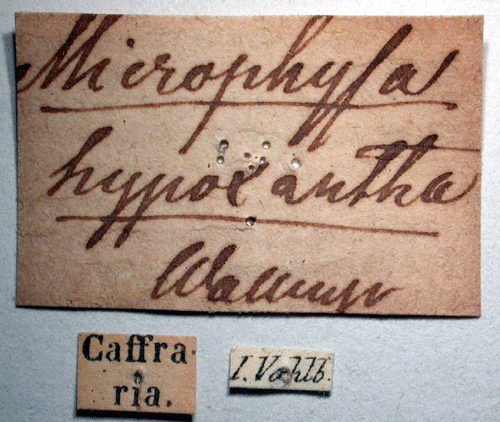 Microphysa
hypoxantha
Wallengr
Caffra-
ria.
I. Vahlb.